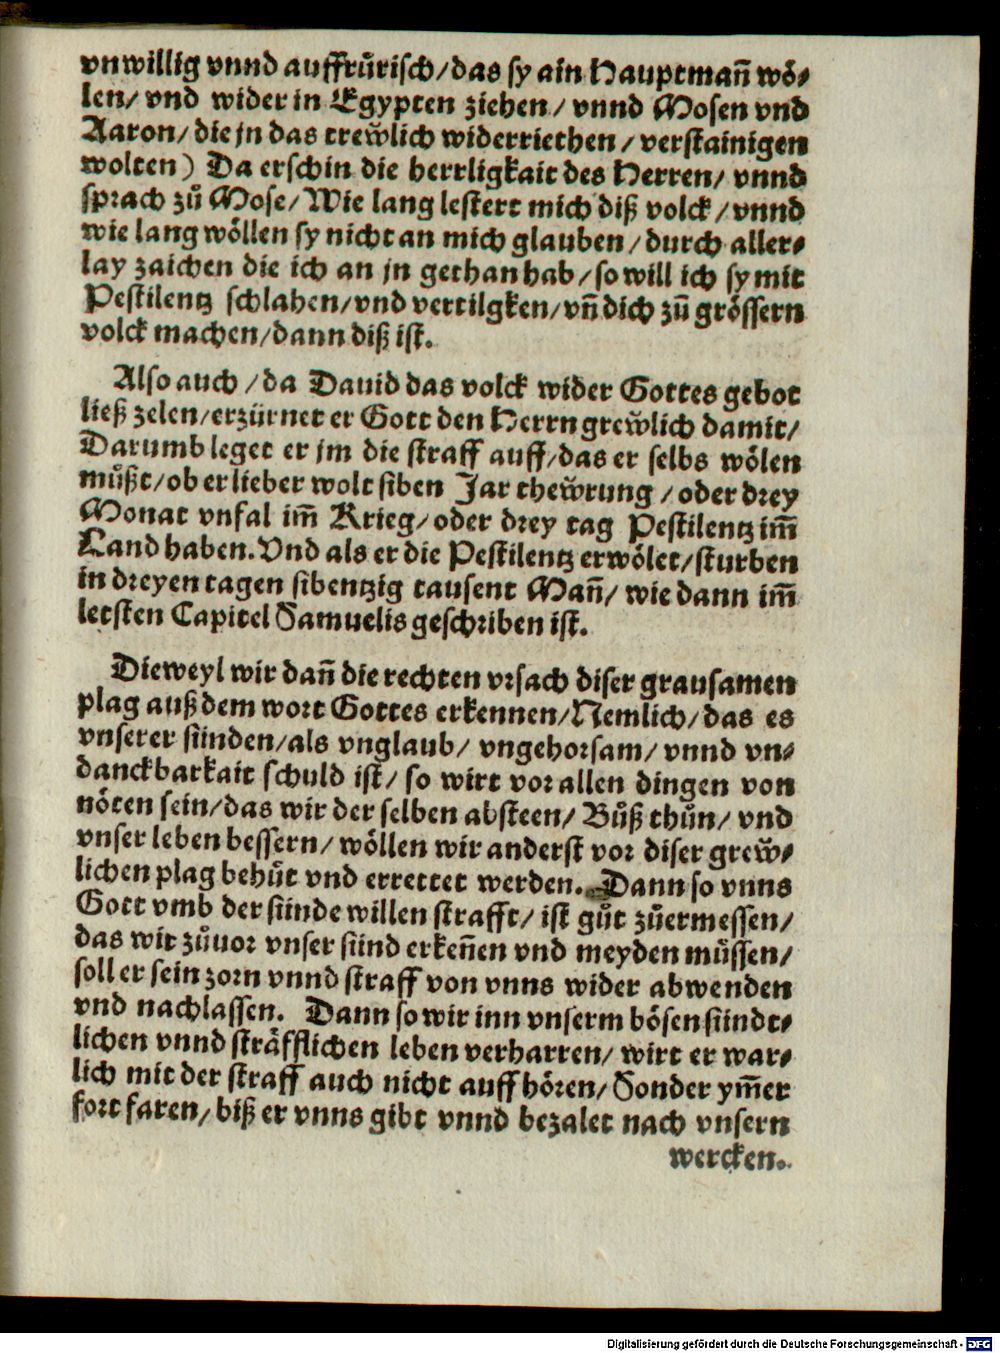 vnwillig vnnd auffrůrisch/das sy ain Hauptmañ wö⸗
len/ vnd wider in Egypten ziehen/ vnnd Mosen vnd
Aaron/ die jn das trew̆lich widerriethen/ verstainigen
wolten) Da erschin die herrligkait des Herren/ vnnd
sprach zů Mose/ Wie lang lestert mich diß volck/ vnnd
wie lang wöllen sy nicht an mich glauben/ durch aller⸗
lay zaichen die ich an jn gethan hab/ so will ich sy mit
Pestilentz schlahen/vnd vertilgken/vñ dich zů grössern
volck machen/dann diß ist.
Also auch/da Dauid das volck wider Gottes gebot
ließ zelen/erzürnet er Gott den Herrn grew̆lich damit/
Darumb leget er jm die straff auff/das er selbs wölen
můßt/ob er lieber wolt siben Jar thew̆rung/oder drey
Monat vnfal im̃ Krieg/oder drey tag Pestilentz im̃
Land haben. Vnd als er die Pestilentz erwölet/sturben
in dreyen tagen sibentzig tausent Mañ/ wie dann im̃
letsten Capitel Samuelis geschriben ist.
Dieweyl wir dañ die rechten vrsach diser grausamen
plag auß dem wort Gottes erkennen/Nemlich/das es
vnserer sünden/als vnglaub/ vngehorsam/ vnnd vn⸗
danckbarkait schuld ist/ so wirt vor allen dingen von
nöten sein/das wir der selben absteen/ Bůß thůn/ vnd
vnser leben bessern/ wöllen wir anderst vor diser grew̆⸗
lichen plag behůt vnd errettet werden. Dann so vnns
Gott vmb der sünde willen strafft/ ist gůt zůermessen/
das wir zůuor vnser sünd erkeñen vnd meyden müssen/
soll er sein zorn vnnd straff von vnns wider abwenden
vnd nachlassen. Dann so wir inn vnserm bösen sündt⸗
lichen vnnd sträfflichen leben verharren/ wirt er war⸗
lich mit der straff auch nicht auff hören/ Sonder ym̃er
fort faren/ biß er vnns gibt vnnd bezalet nach vnsern
wercken.
Digitalisierung gefördert durch die Deutsche Forschungsgemeinschaft - DFG